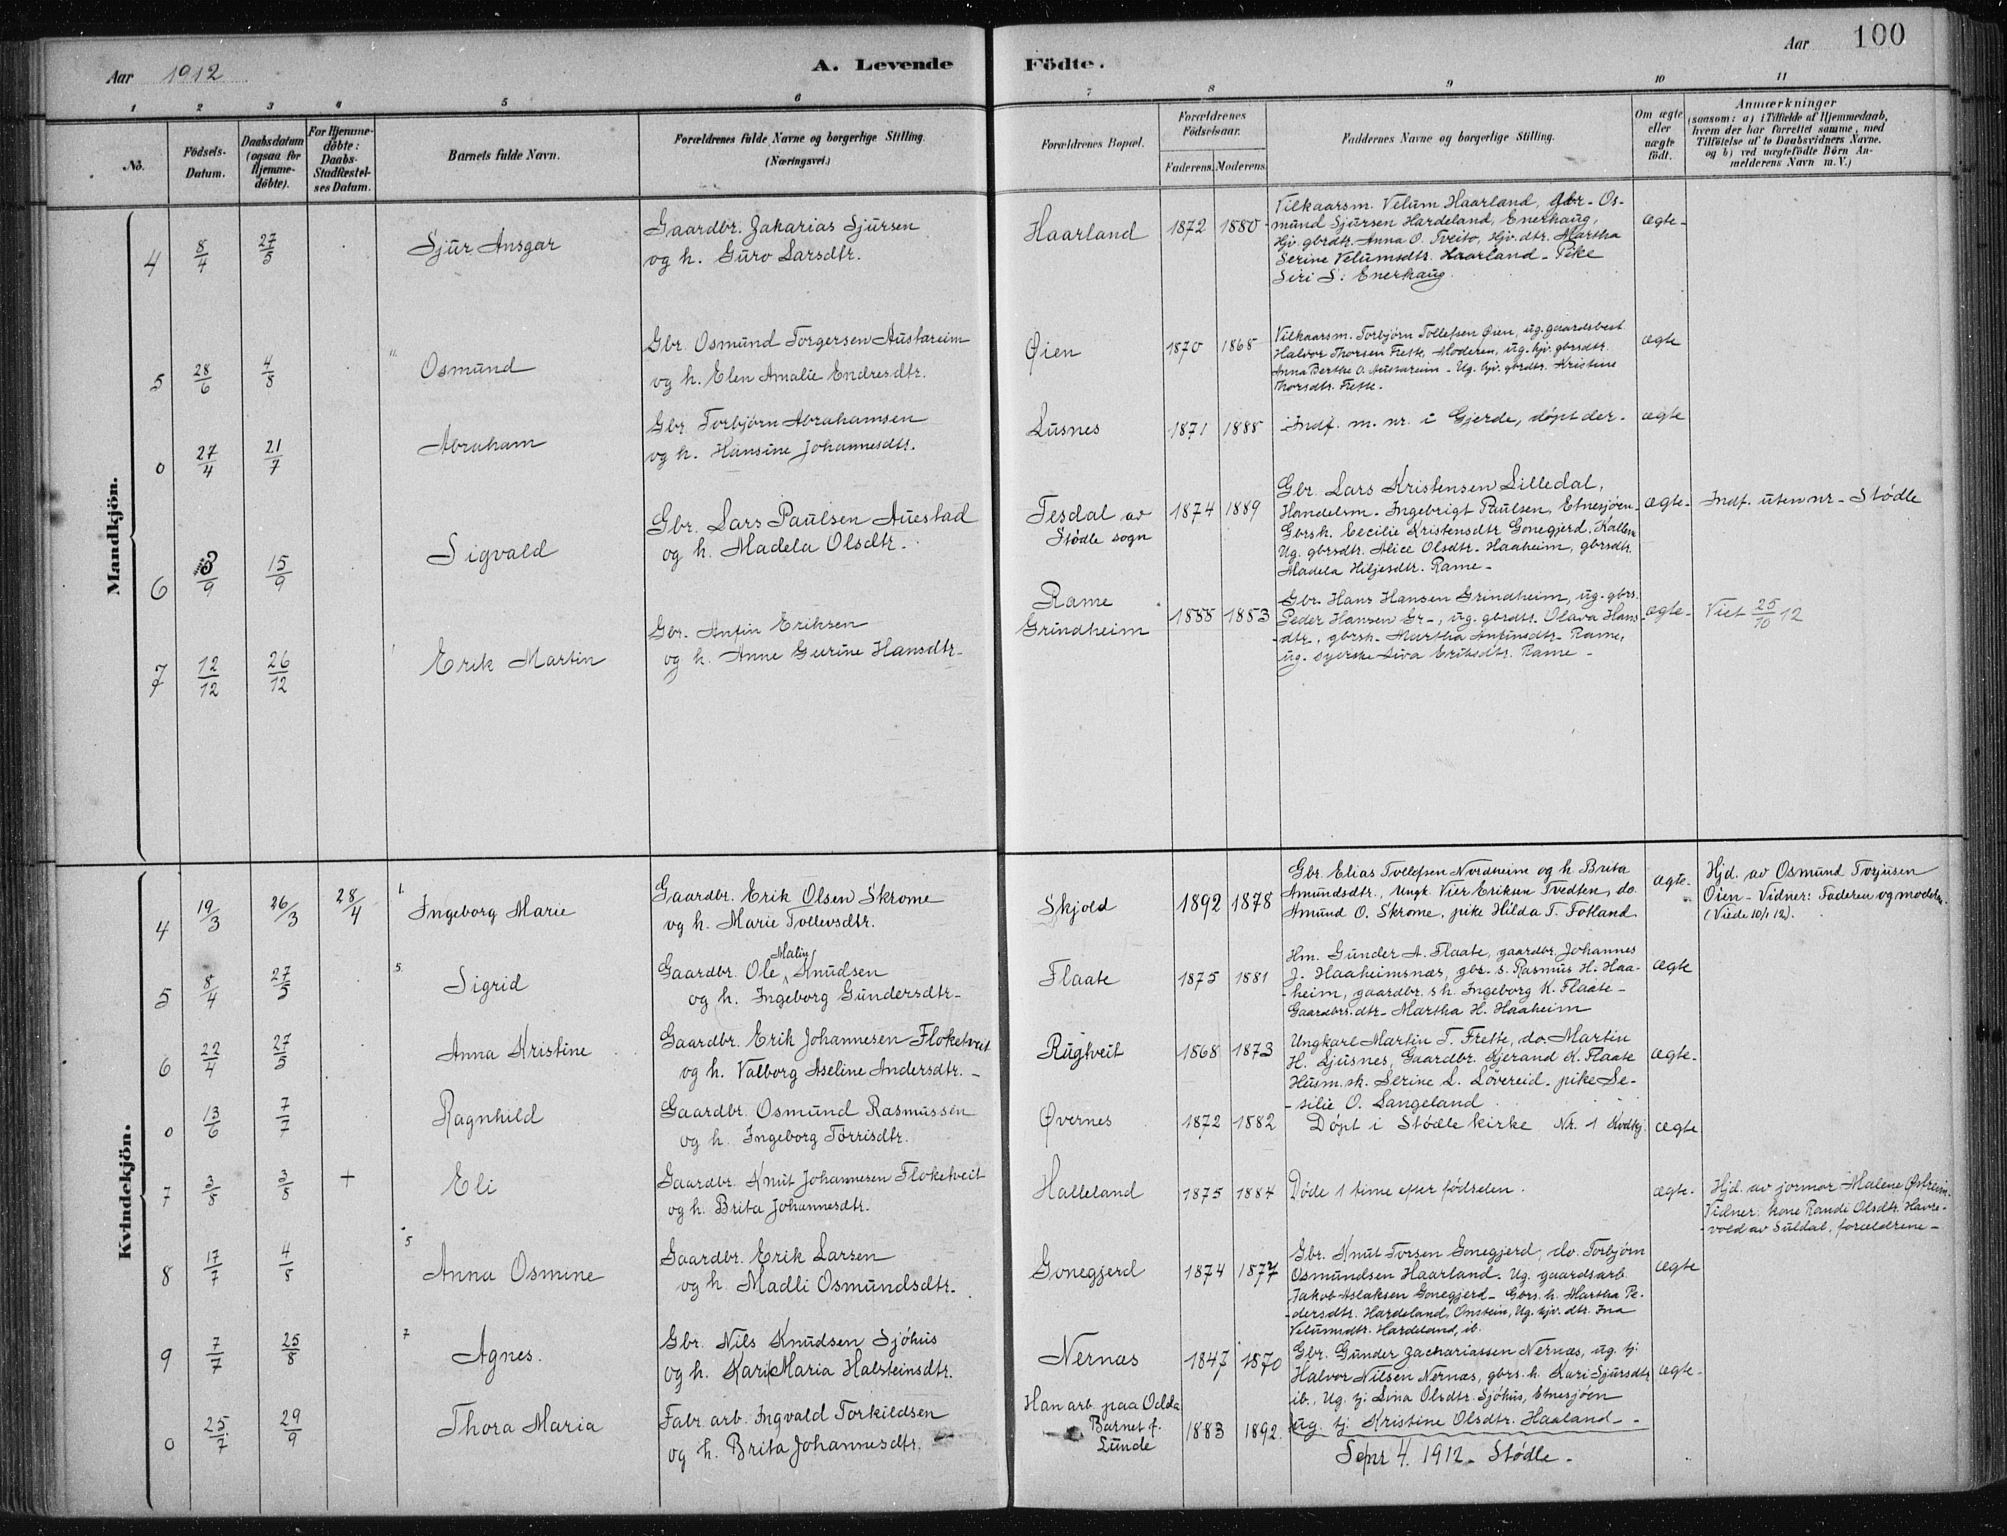 Aar 1912
A. Levende Födte.
Aar 100
1 2 3 4 5 6 7 8 9 10 11
No.
Födsels-Datum.
Daabsdatum (ogsaa for Hjemmedöbte).
For Hjemmedöbte: Daabs-Stadfæstelses Datum.
Barnets fulde Navn.
Forældrenes fulde Navne og borgerlige Stilling.
(Næringsvei.)
Forældrenes Bopæl.
Forældrenes Födselsaar.
Faderens. Moderens.
Faddernes Navne og borgerlige Stilling.
Om ægte eller uægte födt.
Anmærkninger
(saasom: a) i Tilfælde af Hjemmedaab, hvem der har forrettet samme, med Tilföielse af to Daabsvidners Navne, og b) ved uægtefödte Börn Anmelderens Navn m. V.)
Mandkjön.
4 8/4 27/5 Sjur Ansgar
Gaardbr. Zakarias Sjursen
og h. Guro Larsdtr.
Haarland 1872 1880
Vilkaarsm. Velum Haarland, Gbr. Os-
mund Sjursen Hardeland, Enerhaug,
Hjv. gbrdtr. Anna O. Tveito, Hjv. dtr. Martha
Serine Velumsdtr. Haarland - Pike
Siri S: Enerhaug.
ægte-
5 28/6 4/8 Osmund
Gbr. Osmund Torgersen Austareim
og h. Elen Amalie Endresdtr.
Øien 1870 1868
Vilkaarsm. Torbjørn Tollefsen Øien, ug. gaardsbest.
Halvor Thorsen Frette, Moderen, ug. hjv. gbrsdtr.
Anna Berthe O. Austareim - Ug. hjv. gbrdtr. Kristine
Thorsdtr. Frette.
ægte
0 27/4 21/7 Abraham
Gbr. Torbjørn Abrahamsen
og h. Hansine Johannesdtr.
Lusnes 1871 1888
Indf. m. nr. i Gjerde, døpt der.
ægte
6 3/9 15/9 Sigvald
Gbr. Lars Paulsen Auestad
og h. Madela Olsdtr.
Tesdal av
Stødle sogn
1874 1889
Gbr. Lars Kristensen Lilledal,
Handelsm. Ingebrigt Paulsen, Etnesjøen
Gbrsk. Cecilie Kristensdtr Gonegjerd,
Ug. gbrsdtr. Alice Olsdtr. Haaheim, gbrsdtr.
Madela Hiljesdtr. Rame -
ægte-
Indf. uten nr - Stødle
7 12/12 26/12 Erik Martin
Gbr. Anfin Eriksen
og h. Anne Gurine Hansdtr.
Rame
Grindheim
1888 1853
Gbr. Hans Hansen Grindheim, ug. gbrs.
Peder Hansen Gr-, ug. gbrdtr. Olava Hans-
dtr., gbrsk. Martha Anfinsdtr. Rame,
ug. syerske Siva Eriksdtr. Rame -
ægte-
Viet 25/10 12
Kvindekjön.
4 19/3 26/3 28/4 1. Ingeborg Marie
Gaardbr. Erik Olsen Skrome
og h. Marie Tollevsdtr.
Skjold 1892 1878
Gbr. Elias Tollefsen Nordheim og h. Brita
Amundsdtr., Ungk. Vier Eriksen Tvedten, do.
Amund O. Skrome, pike Hilda T. Fotland.
ægte-
Hjd. av Osmund Torjusen
Øien - Vidner: Faderen og moderen.
(Viede 10/1 12).
5 8/4 27/5 5. Sigrid
Gaardbr. Ole Malin Knudsen
og h. Ingeborg Gundersdtr-
Flaate 1875 1881
Hm. Gunder A. Flaate, gaardbr. Johannes
J. Haaheimsnæs, gbr. s. Rasmus H. Haa-
-heim, gaardbr. s h. Ingeborg K. Flaate -
Gaardbrs. dtr- Martha H. Haaheim
ægte
6 22/4 27/5 Anna Kristine
Gaardbr. Erik Johannesen Floketveit
og h. Valborg Aseline Andersdtr. -
Rugtveit 1868 1873
Ungkarl Martin T. Frette, do. Martin
H. Ljusnes, Gaardbr. Kjerand K. Flaate
Husm. sk. Serine L. Løvereid - pike Se-
-silie O. Langeland
ægte-
0 13/6 7/7 Ragnhild
Gaardbr. Osmund Rasmussen
og h. Ingeborg Tørrisdtr.
Øvernes 1872 1882
Døpt i Stødle kirke Nr. 1 Kvdkj.
ægte
7 3/8 3/8 + Eli
Gaardbr. Knut Johannesen Floketveit
og h. Brita Johannesdtr.
Halleland 1875 1884
Døde 1 time efter fødselen.
ægte-
Hjd. av jormor Malene Østrem.
Vidner: kone Randi Olsdtr. Havre-
-vold av Suldal, forældrene -
8 17/7 4/8 5 Anna Osmine
Gaardbr. Erik Larsen
og h. Madli Osmundsdtr.
Gonegjerd 1874 1877
Gbr. Knut Torsen Gonegjerd, do. Torbjørn
Osmundsen Haarland. Ug. gaardsarb.
Jakob Aslaksen Gonegjerd - Gbrs. h. Martha Pe-
-dersdtr. Hardeland, Onstein, Ug. hjv. dtr. Ina
Velumsdtr. Hardeland, ib.
ægte
9 7/7 25/8 7 Agnes.
Gbr. Nils Knudsen Sjöhus
og h. Kari Maria Halsteinsdtr.
Nernæs 1847 1870
Gbr. Gunder Zachariassen Nernæs, ug. tj.
Halvor Nilsen Nernæs, gbrs. h. Kari Sjursdtr
ib., Ug. tj. Lina Olsdtr. Sjöhus, Etnesjøen
ug. tj Kristine Olsdtr. Haaland -
ægte-
0 25/7 29/9 Thora Maria
Fabr. arb. Ingvald Torkildsen
og h. Brita Johannesdtr.
Han arb. paa Odda
Barnet f.
Lunde
1883 1892.
Sepr 4. 1912 - Stødle -